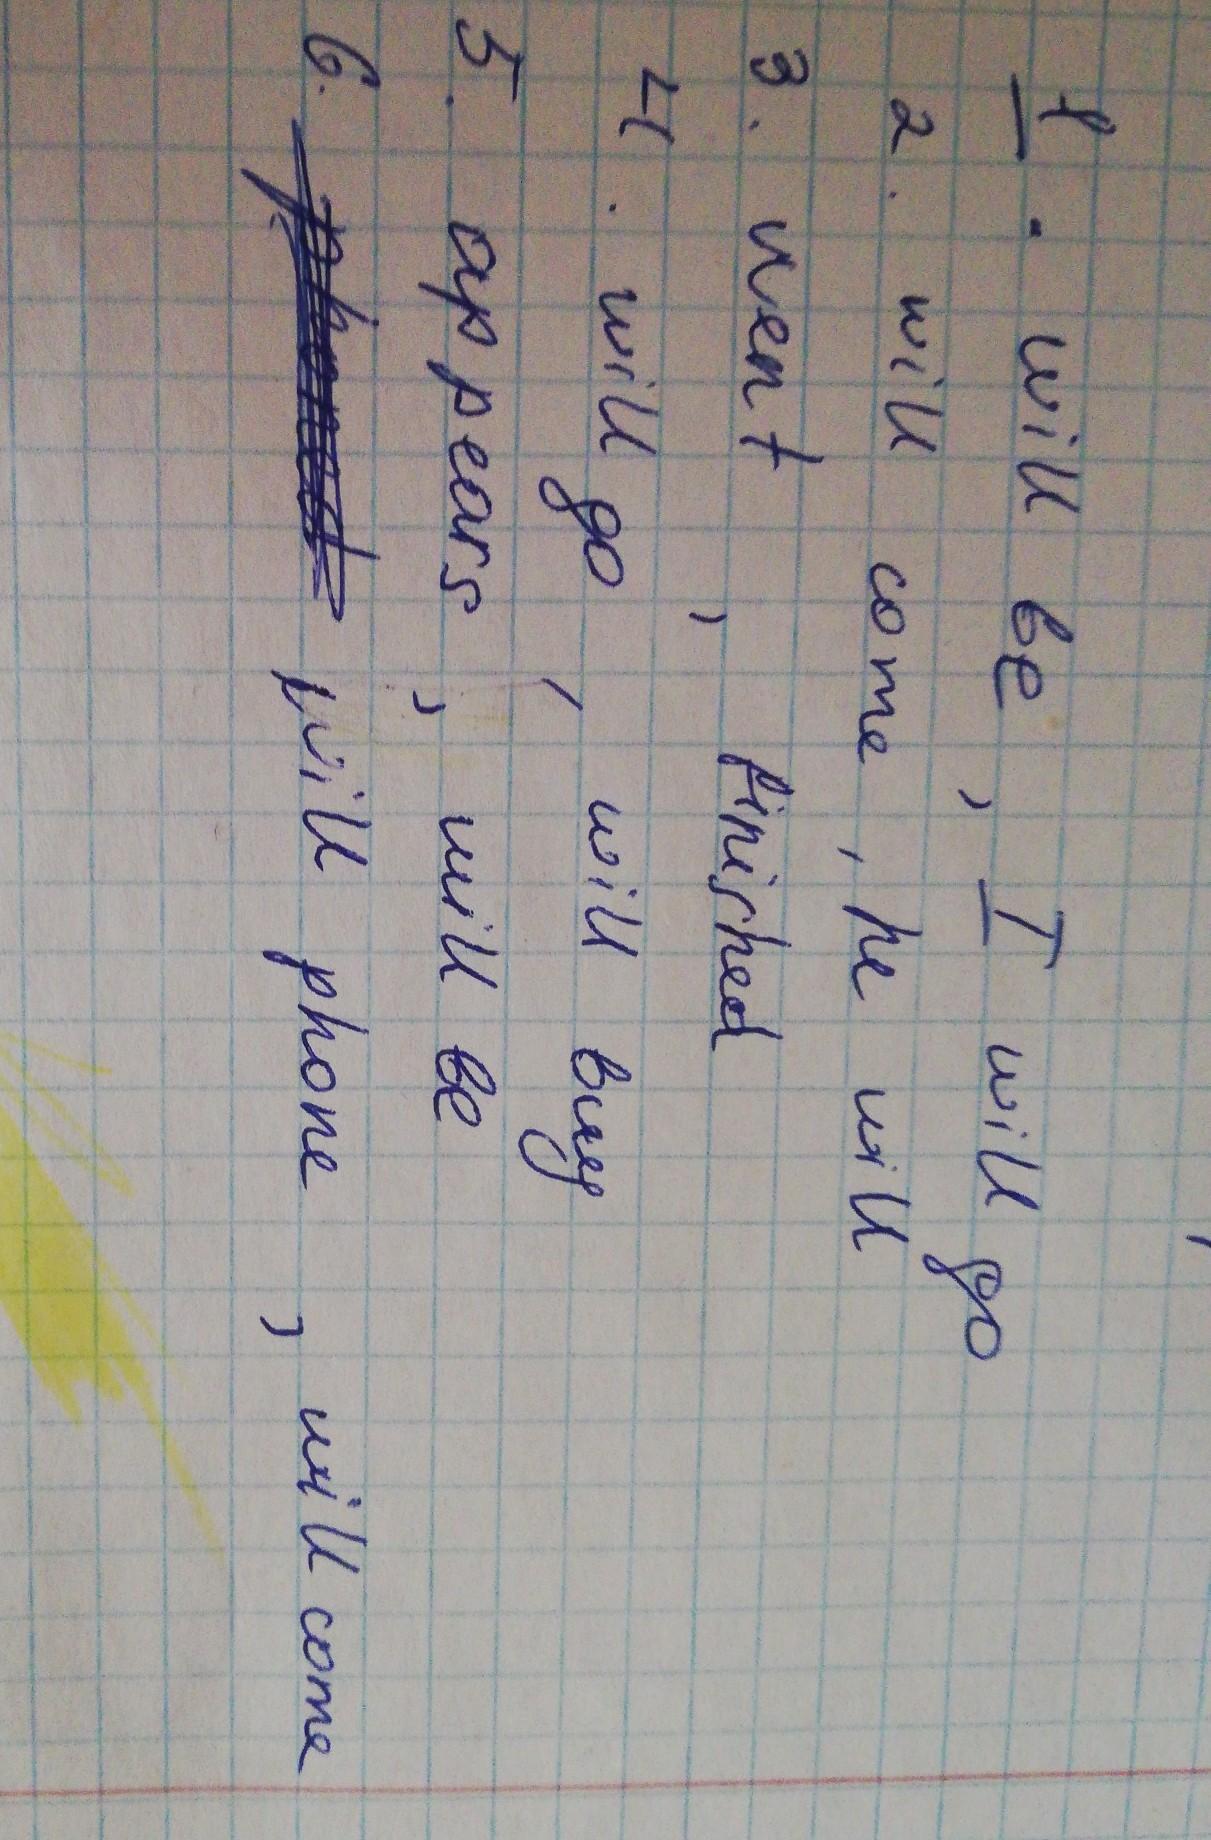 1. will be, I will go
2. will come, he will
3. went, finished
4. will go, will buy
5. appears, will be
6. will phone, will come